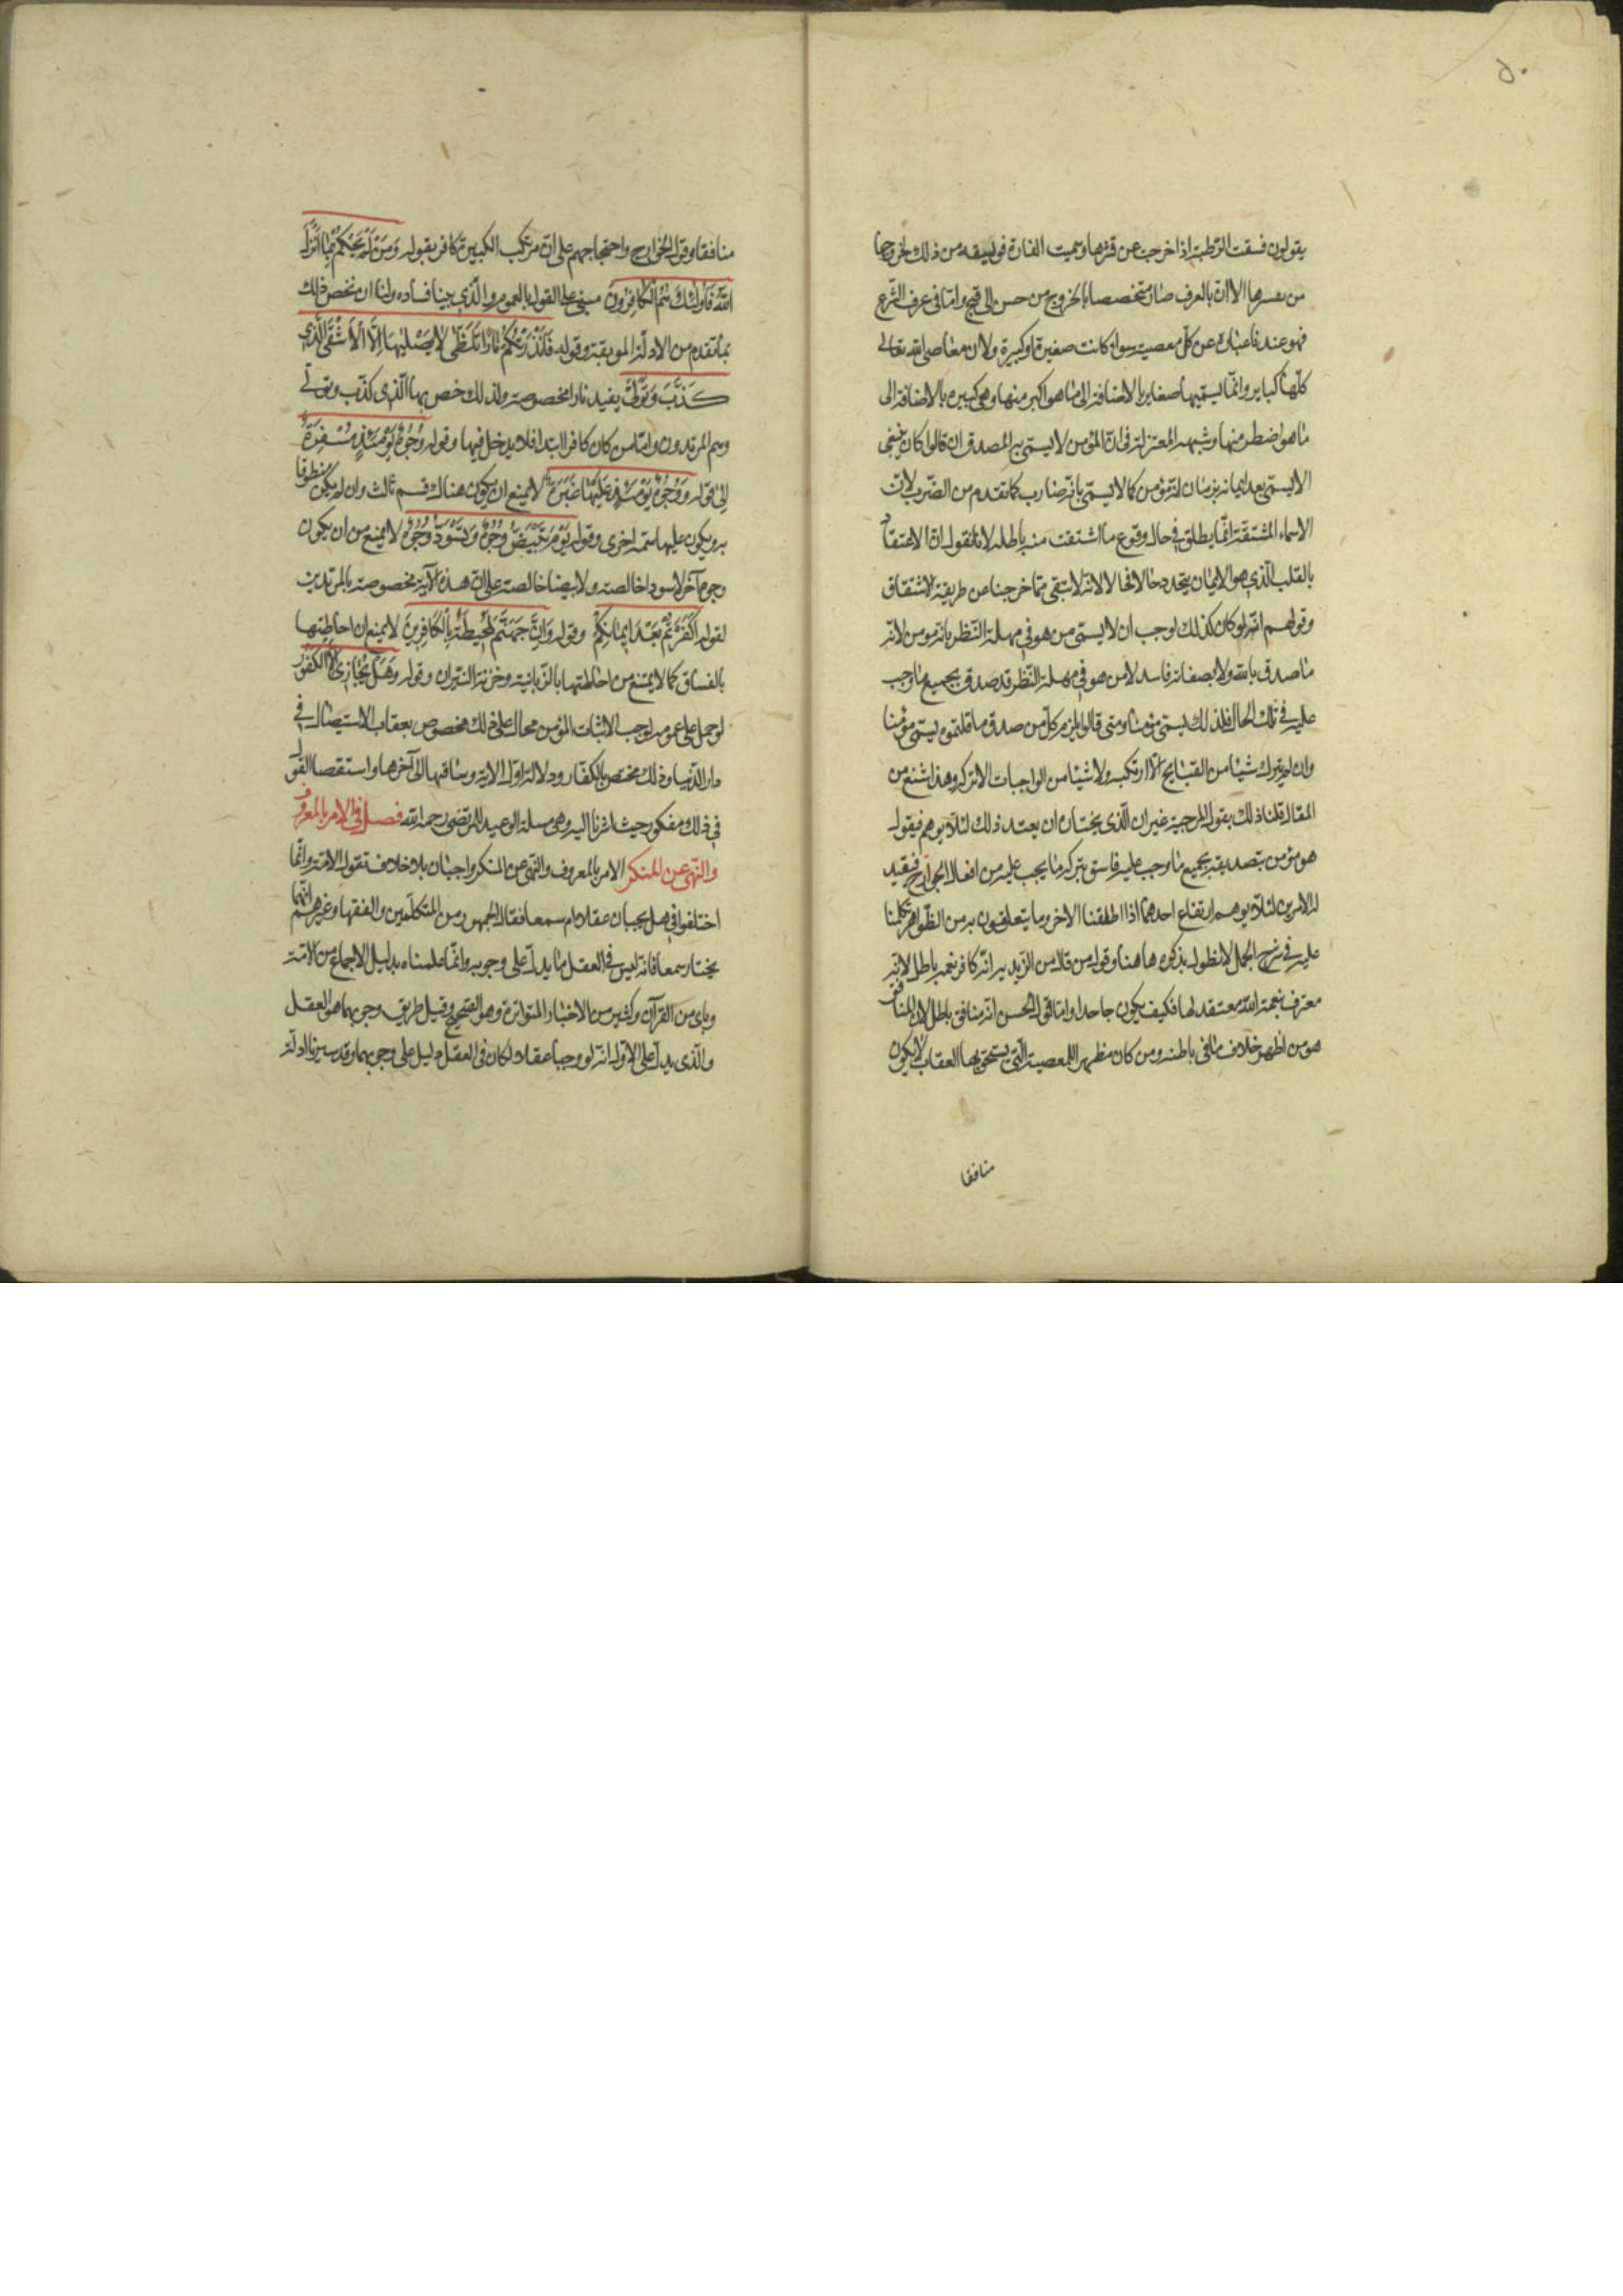 ٥٠
يقولون فسقت الرّطبة إذا خرجت عن قشرها وسميت الفارة فويسقه من ذلك لخروجها
من الا ان بالعرف صار متخصصا بالخروج من حسن الى قبيح وامّا فى عرف الشّرع
فهو عندنا عبارة عن كلّ معصية سواء كانت صغيرة او كبيرة ولان معاصى الله تعالى
كلّها كباير وانّما نسمّيها صغاير بالاضافة الى ما هو اكبر منها وهى كبيره بالاضافة الى
ما هو اصغر منها وشبهه المعتزلة فى انّ المؤمن لا يسمّى به المصدق ان قالوا كان ينبغى
الا يسمّى بعد ايمانه بزمان انّه مؤمن كما لا يسمّى بانّه ضارب كما تقدم من الضّرب لانّ
الاسماء المشتقّة انّما يطلق فى حال وقوع ما اشتقت منه باطله لانا نقول انّ الاعتقاد
بالقلب الّذى هو الايمان يتجدد حالا فحالا لانّه لا يبقى فما خرجنا من طريقة الاشتقاق
وقولهم انّه لو كان كذلك لوجب ان لا يسمّى من هو فى مهلة النّظر بانّه مؤمن لانّه
ما صدق بالله ولا بصفاته فاسد لان من هو فى مهلة النّظر قد صدق بجميع ما وجب
عليه فى تلك الحال فلذلك يسمّى مؤمنا ومتى قالوا يلزم كلّ من صدق ما قلتموه يسمّى مؤمنا
وان لم يترك شيئا من القبايح الّا ارتكبه ولا شيئا من الواجبات الا تركه وهذا شنع من
المقال قلنا ذلك يقوله المرجية غير ان الّذى يختاره ان يعتد ذلك لئلا يوهم فيقول
هو مؤمن بتصديقه بجميع ما وجب عليه فاسق بتركه ما يجب عليه من افعال الجوارح فيقيد
له الامرين لئلّا يوهم ارتفاع احدهما اذا اطلقنا الاخر وما يتعلقون به من الظّواهر تكلمنا
عليه فى شرح الجمل لا نطول بذكره هاهنا وقول من قال من الزّيدية انّه كافر نعمه باطل لانّه
معترف بنعمة الله معتقد لها فكيف يكون جاحدا وامّا قول الحسن انّه منافق باطل لان المنافق
هو من اظهر خلاف ما فى باطنه ومن كان مظهرا للمعصية الّتى يستحق بها العقاب لا يكون
منافقا
منافقا وقول الخوارج واحتجاجهم على انّ مرتكب الكبيرة كافر بقوله وَمَنْ لَمْ يَحْكُمْ بِمَا أَنْزَلَ
اللهُ فَأُولئِكَ هُمُ الْكَافِرُونَ مبنى على القول بالعموم والّذى بينا فساده ولنا ان نخص ذلك
بما تقدم من الادلّة الموبقة وقوله فَأَنْذَرْتُكُمْ نَارًا تَلَظَّى لَا يَصْلَيهَا إِلَّا الْأَشْقَى الَّذِى
كَذَّبَ وَتَوَلَّى يفيد نارا مخصوصة ولذلك خص بها الّذى كذّب وتولّى
وهم المرتدون وامّا من كان كافرا ابتداء فلا يدخل فيها وقوله وُجُوهٌ يَوْمَئِذٍ مُسْفِرَةٌ
إلى قوله وَوُجُوهٌ يَوْمَئِذٍ عَلَيْهَا غَبَرَةٌ لا يمنع ان يكون هناك قسم ثالث وان لم يكن منطوقا
به ويكون عليها سمة اخرى وقوله يَوْمَ تَبْيَضُّ وُجُوهٌ وَتَسْوَدُّ وُجُوهٌ لا يمنع من ان يكون
وجوه آخر لا سودا خالصة ولا بيضا خالصة على انّ هذه الآية مخصوصة بالمرتدين
لقوله أَكَفَرْتُمْ بَعْدَ إِيمَانِكُمْ وقوله وَإِنَّ جَهَنَّمَ لَمُحِيطَةٌ بِالْكَافِرِينَ لا يمنع ان احاطتها
بالفساق كما لا يمتنع من احاطتها بالزّبانية وخزنة النّيران وقوله وَهَلْ نُجَازِى إِلَّا الْكَفُورَ
لو حمل على عمومه لوجب الا يثاب المؤمن محال على ذلك مخصوص بعقاب الاستيصال فى
دار الدّنيا وذلك مختص بالكفّار ودلالة اوّل الاية وسياقها الى آخرها واستقصا القول
فى ذلك مذكور حيث اشرنا اليه وهى مسلة الوعيد للمرتضى رحمه الله فصل فى الامر بالمعروف
والنّهى عن المنكر الامر بالمعروف والنّهى عن المنكر واجبان بلا خلاف بقول الامّة وانّما
اختلفوا فى هل يجبان عقلا ام سمعا فقال الجمهور من المتكلّمين والفقهاء وغيرهم انّهما
يجبان سمعا فانّه ليس فى العقل ما يدلّ على وجوبه وانّما علمناه بدليل الاجماع من الامّة
وباى من القرآن وكثير من الاخبار المتواترة وهو الصّحيح وقيل طريق وجوبهما هو العقل
والّذى يدلّ على الاوّل انّه لو وجبا عقلا لكان فى العقل دليل على وجوبهما وقد سبرنا ادلّة